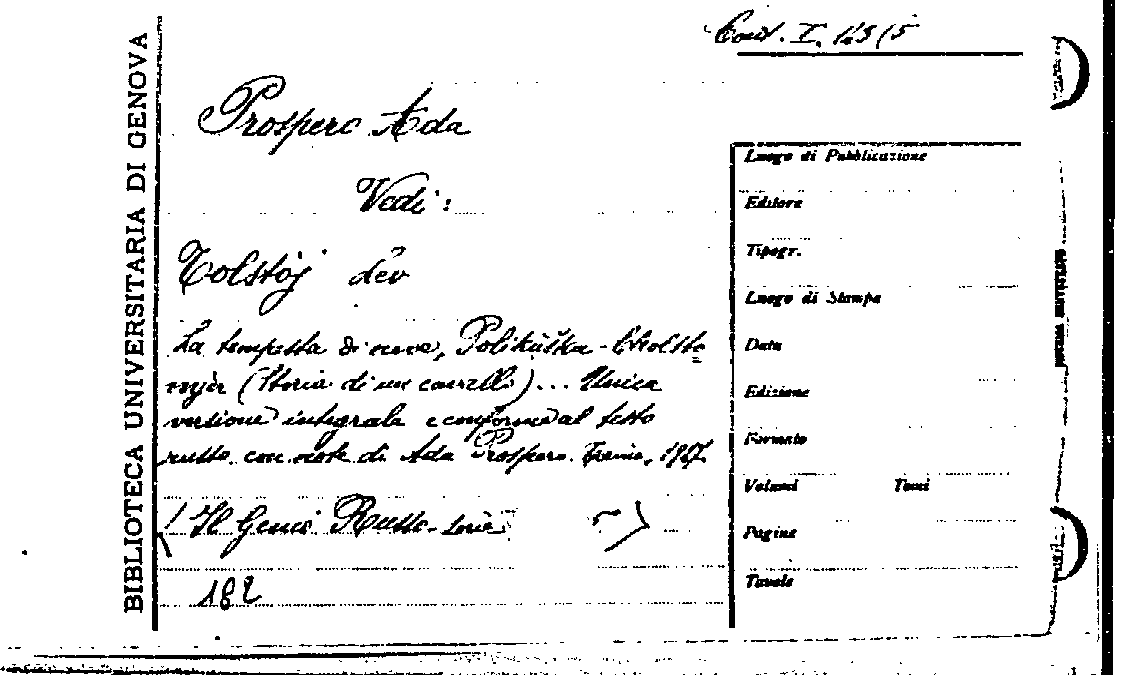 BIBLIOTECA UNIVERSITARIA DI GENOVA
Prospero Ada
Vedi:
Tolstòj
La tempesta di neve, Polikùška - Cholsto
mjèr (Storia di un cavallo)... Unica
versione integrale e conforme al testo
russo con note di Ada Prospero. Torino,
(Il Genio Russo. Serie 5)
182
Luogo di Pubblicazione
Editore
Tipogr.
Luogo di Stampa
Data
Edizione
Formato
Volumi Tomi
Pagine
Tavole